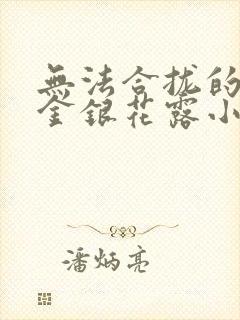 無法合拢的
金銀花露小
潘炳亮